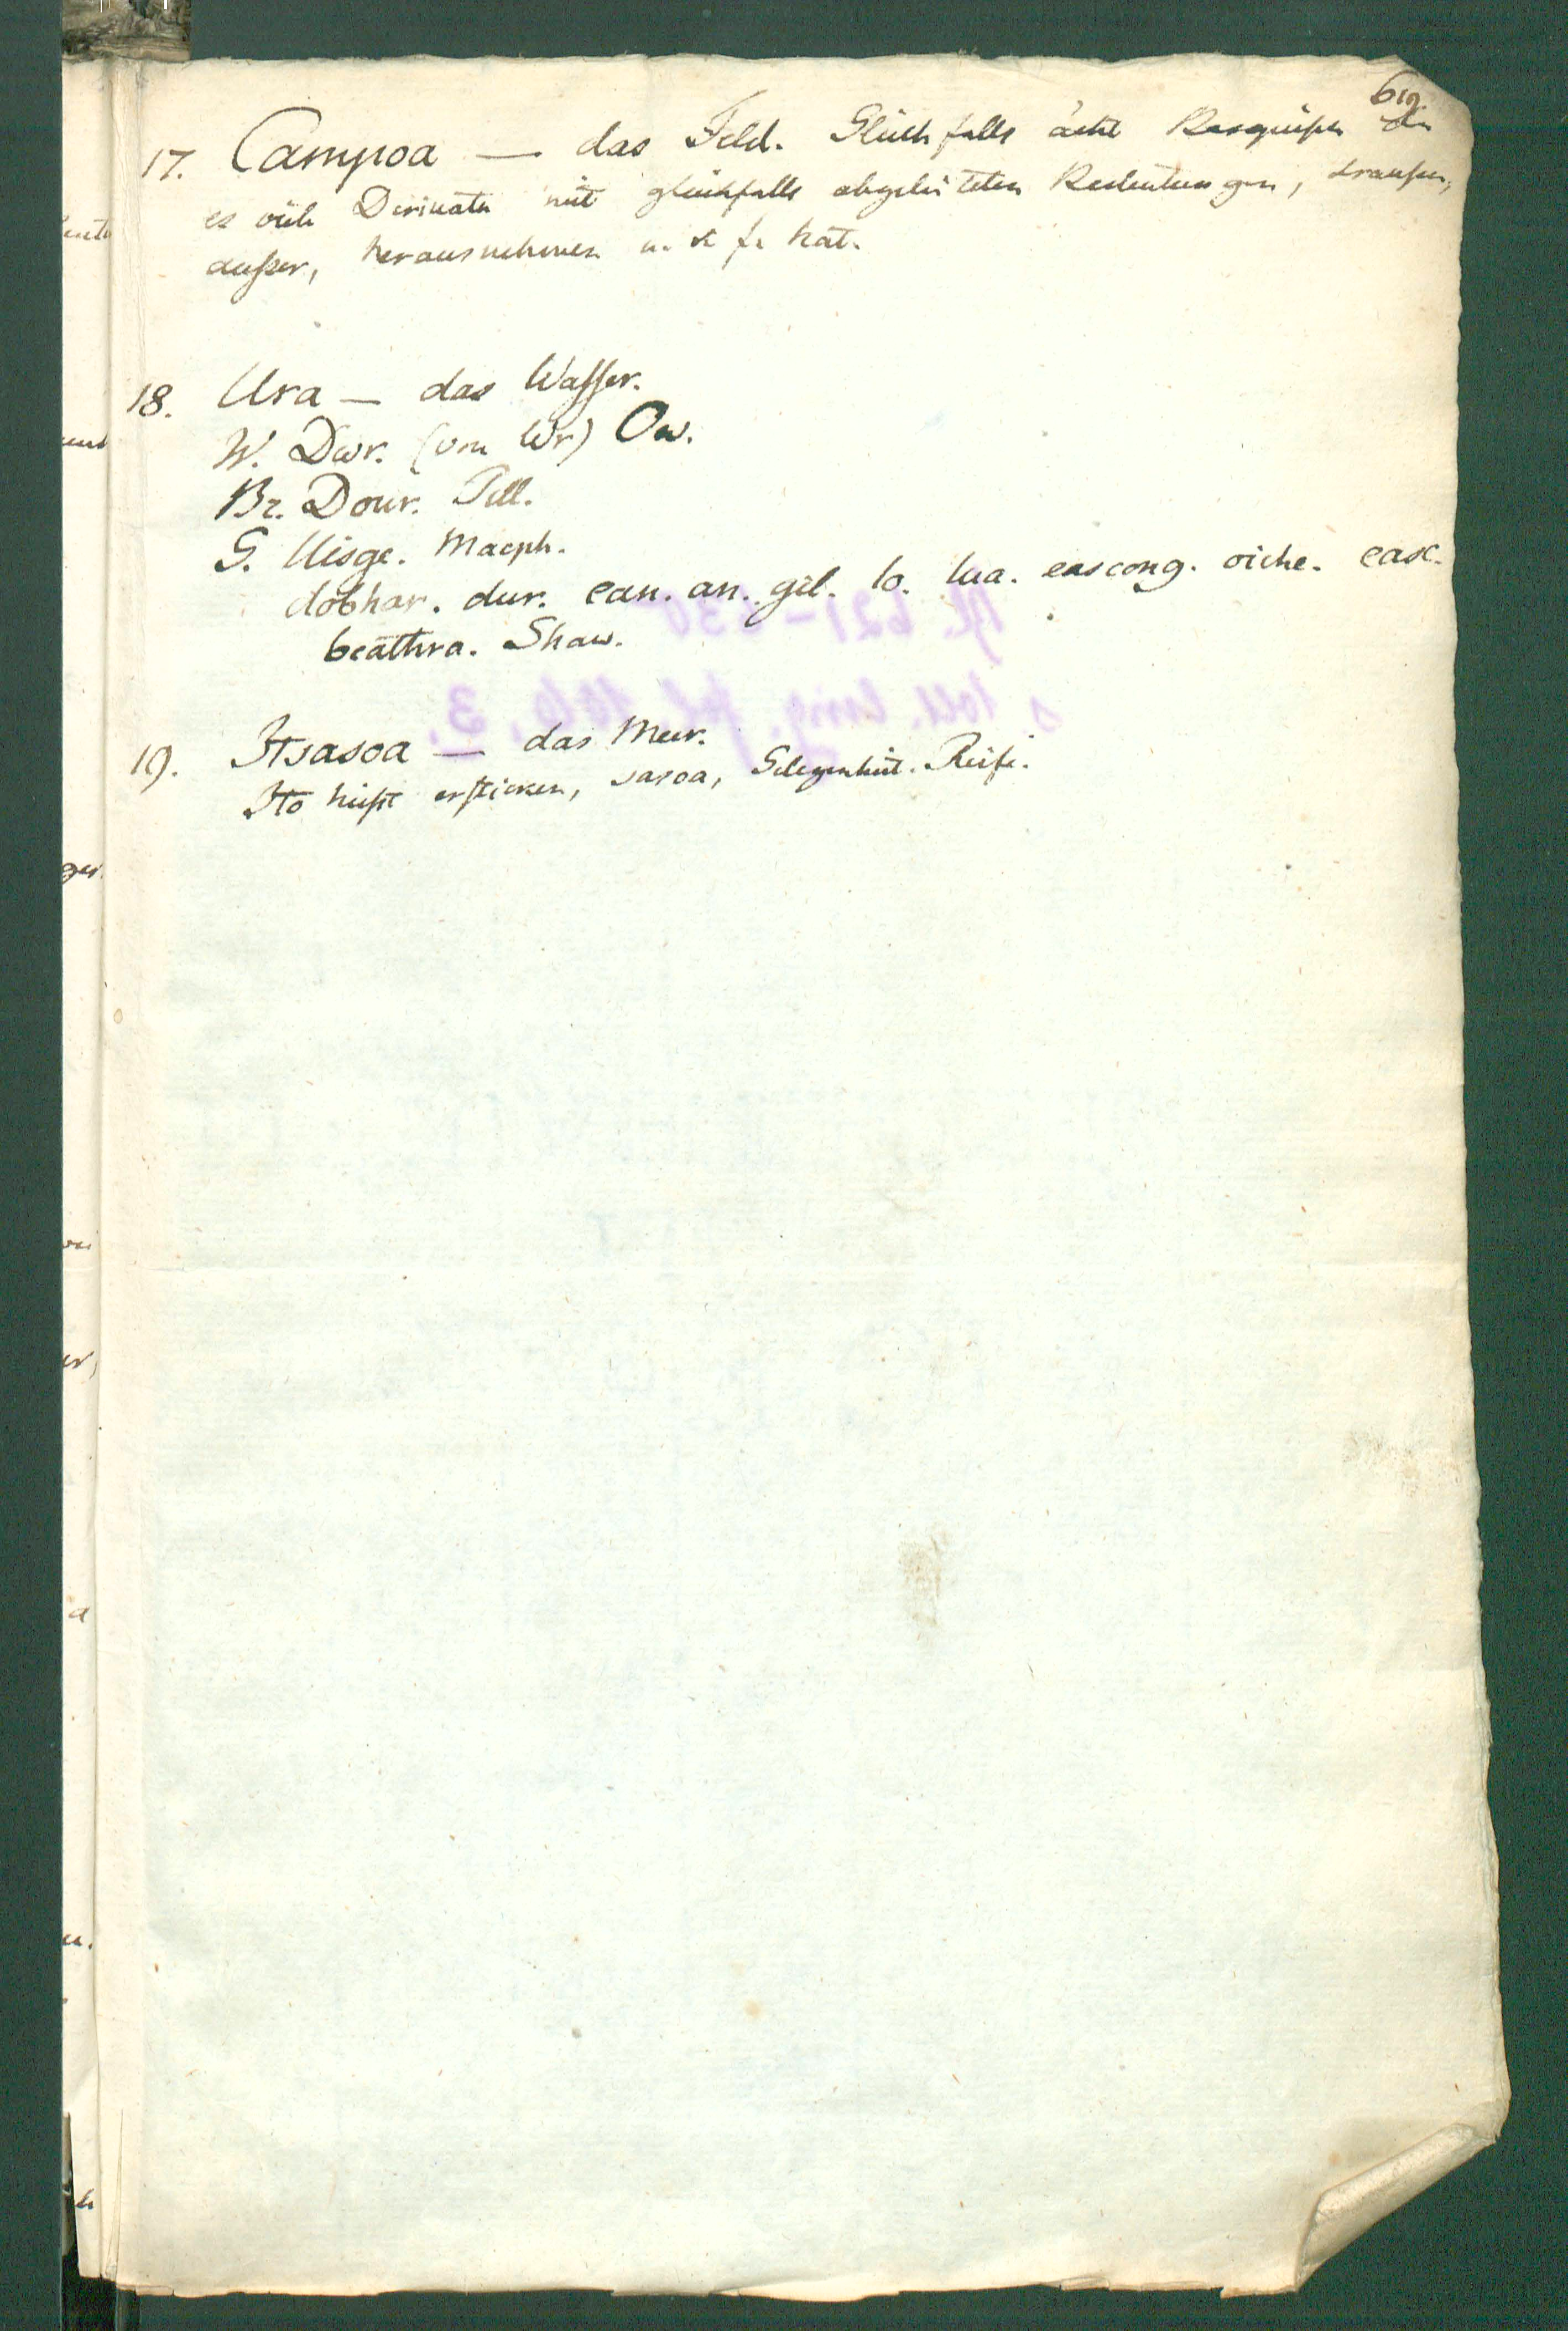 619.
17. Campoa — das Feld. Gleichfalls ächt Vasquisch da
es viele Derivata mit gleichfalls abgeleiteten Bedeutungen, draußen,
außer, herausnehmen u. s. f. hat.
18. Ura — das Wasser.
W. Dwr. (von Wr) Ow.
Br. Dour. Pell.
G. Uisge. Macph.
dobhar. dur. ean. an. gil. lo. lua. eascong. oiche. easc.
beathra. Shaw.
19. Itsasoa — das Meer.
Ito heißt ersticken, sasoa, Gelegenheit. Reife.